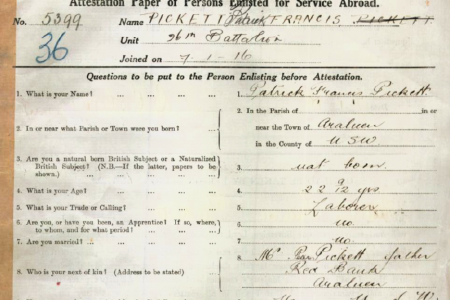 Attestation Paper of Persons Enlisted for Service Abroad.
No. 5399 Name PICKETT Patrick FRANCIS, PICKETT
36 Unit 26th Battalion
Joined on 7-1-16
Questions to be put to the Person Enlisting before Attestation.
1. What is your Name? ... ... ... ... 1. Patrick Francis Pickett
2. In or near what Parish or Town were you born? ... 2. In the Parish of in or
near the Town of Araluen
in the County of NSW
3. Are you a natural born British Subject or a Naturalized
British Subject? (N.B.—If the latter, papers to be
shown.) ... ... ... ... 3. nat born
4. What is your Age? ... ... ... ... 4. 22 yrs
5. What is your Trade or Calling? ... ... ... 5. Laborer
6. Are you, or have you been, an Apprentice? If so, where,
to whom, and for what period? ... ... ... 6. no
7. Are you married? ... ... ... ... 7. no
8. Who is your next of kin? (Address to be stated) ... 8. Mr Pickett father
Red Bank
Araluen